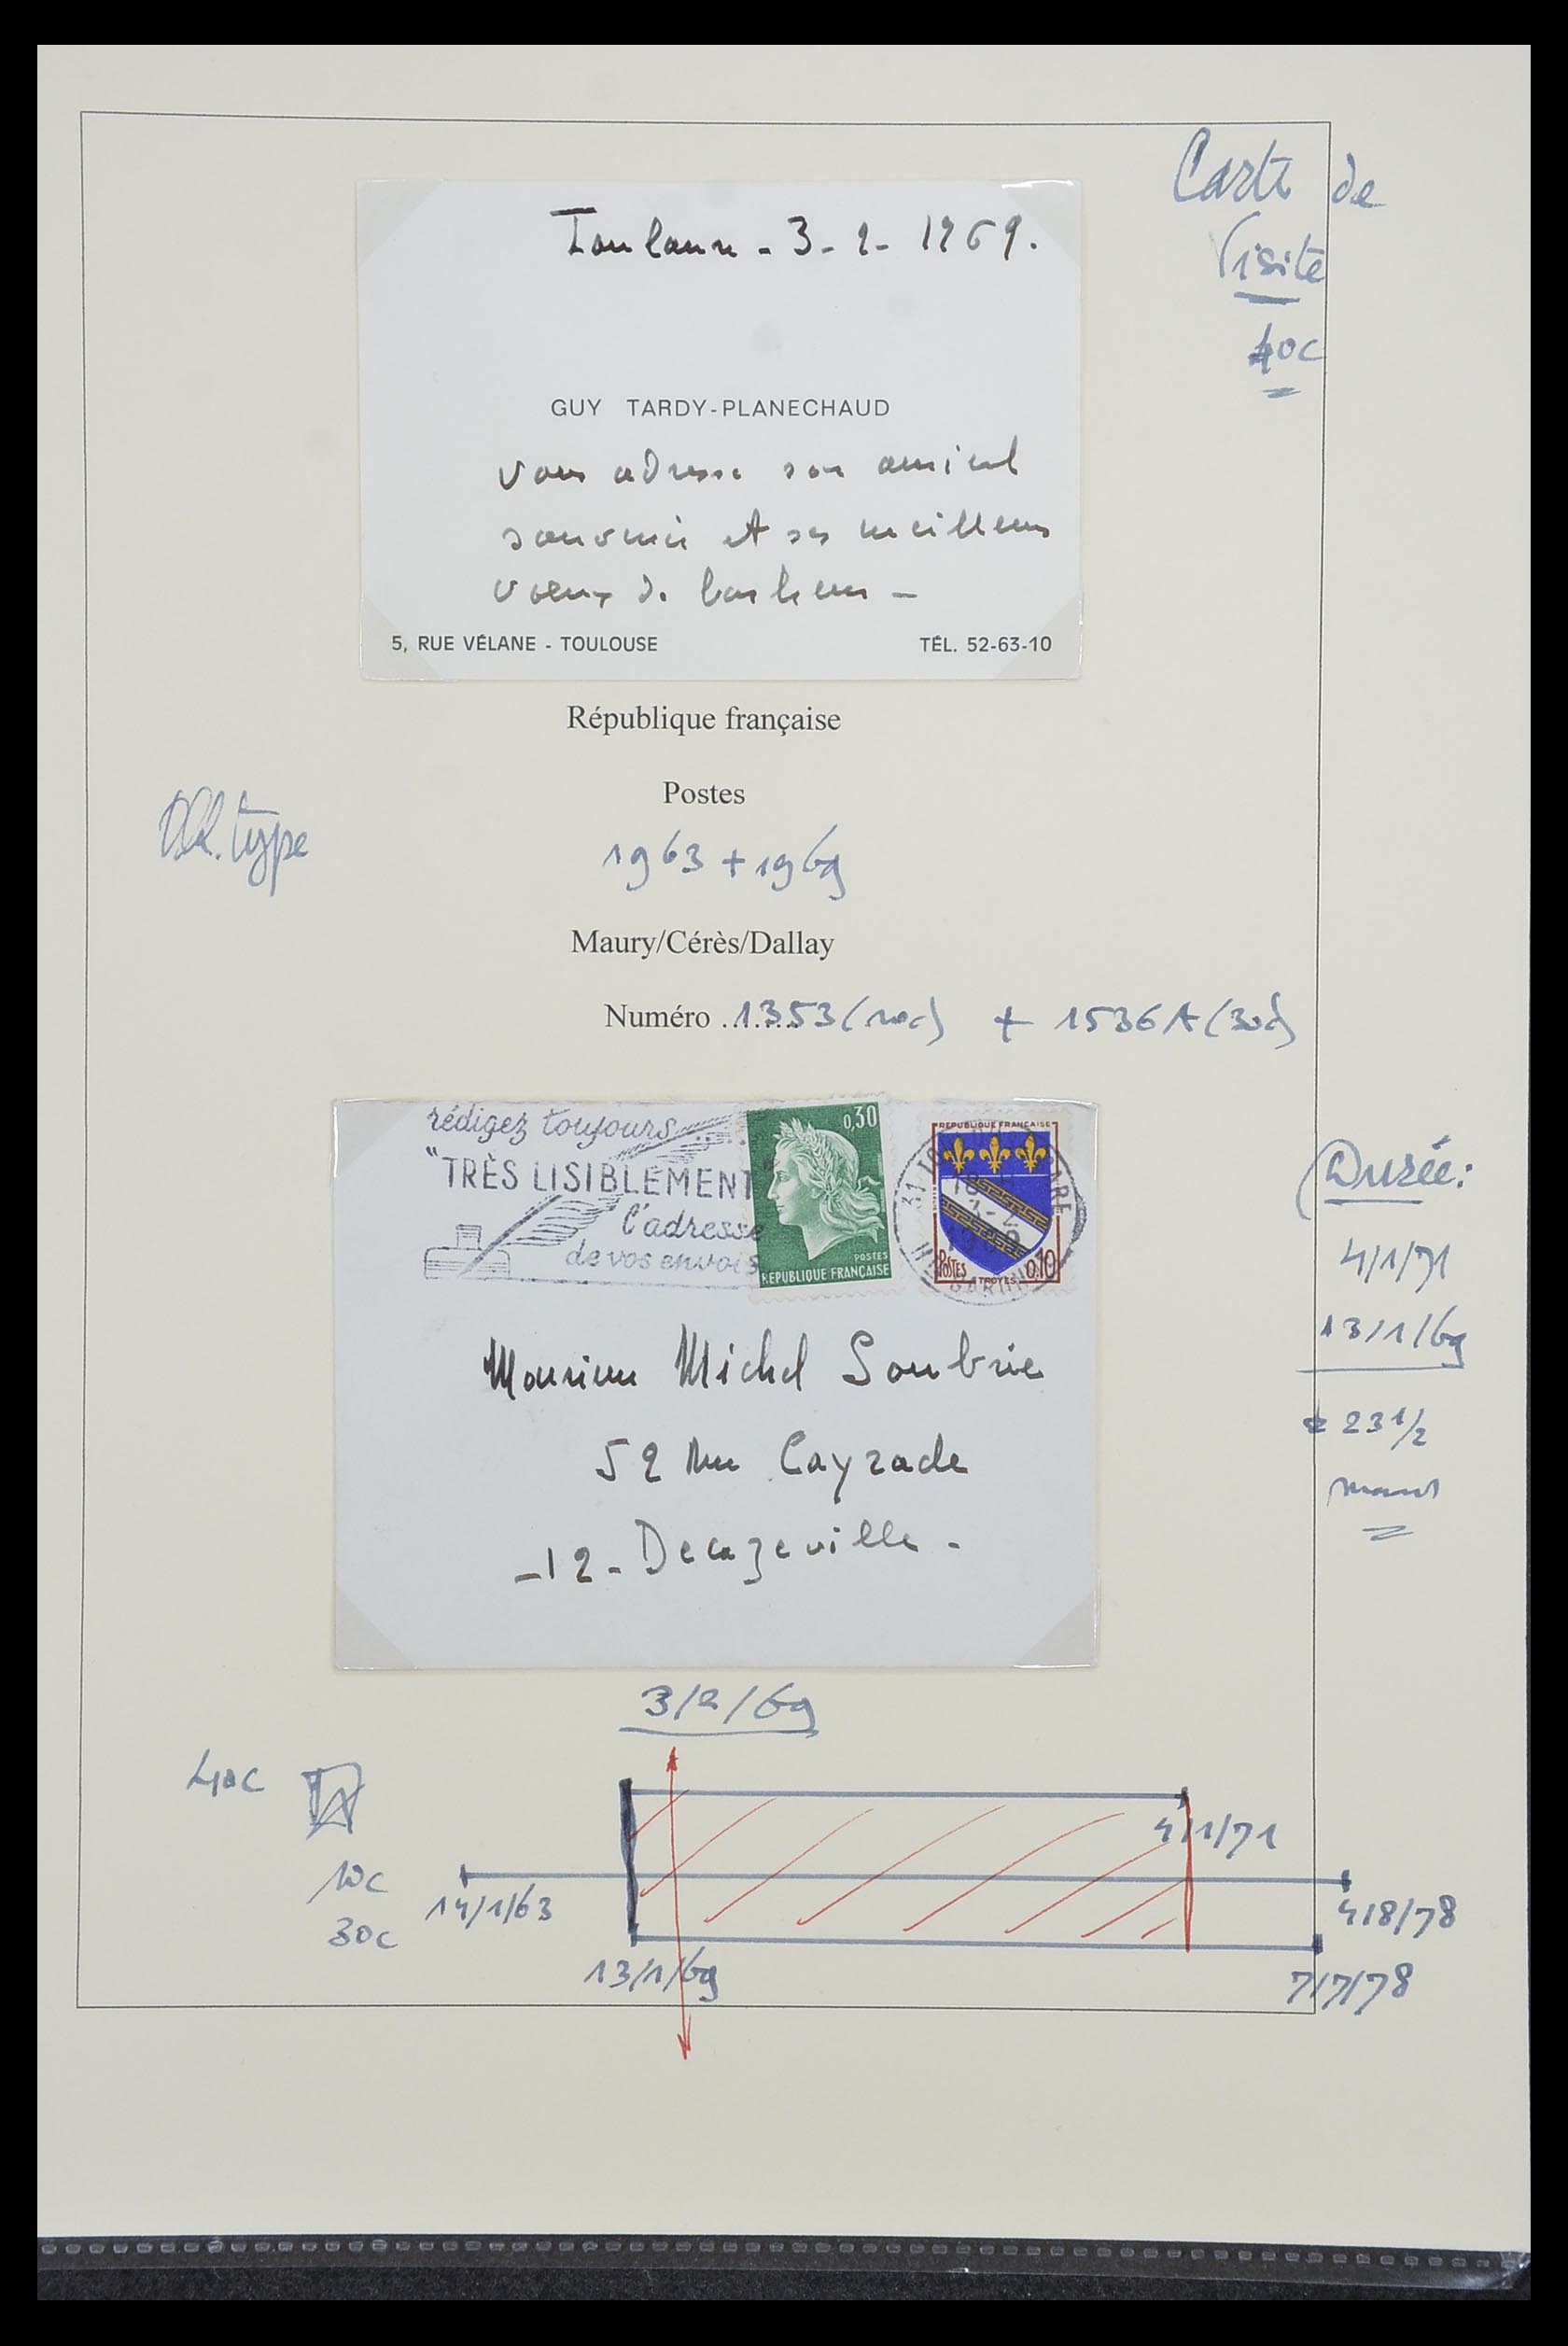 Carte de
Visite
40c
Toulouse - 3-2-1969.
GUY TARDY-PLANECHAUD
vous adresse son amical
souvenir et ses meilleurs
vœux de bonheur -
5, RUE VÉLANE - TOULOUSE
TÉL. 52-63-10
République française
Postes
type
1963 + 1969
Maury/Cérès/Dallay
Numéro ........ 1353 (10c) + 1536A (30c)
rédigez toujours
"TRÈS LISIBLEMENT"
l'adresse
de vos envois
0,30
POSTES
REPUBLIQUE FRANÇAISE
REPUBLIQUE FRANÇAISE
POSTES
TROYES
0,10
31 GARE
Monsieur Michel Soubrie
52 Rue Cayrade
-12- Decazeville -
Durée:
4/1/71
13/1/69
23 1/2
3/2/69
40c
4/1/71
10c
14/1/63
4/8/78
30c
13/1/69
7/7/78